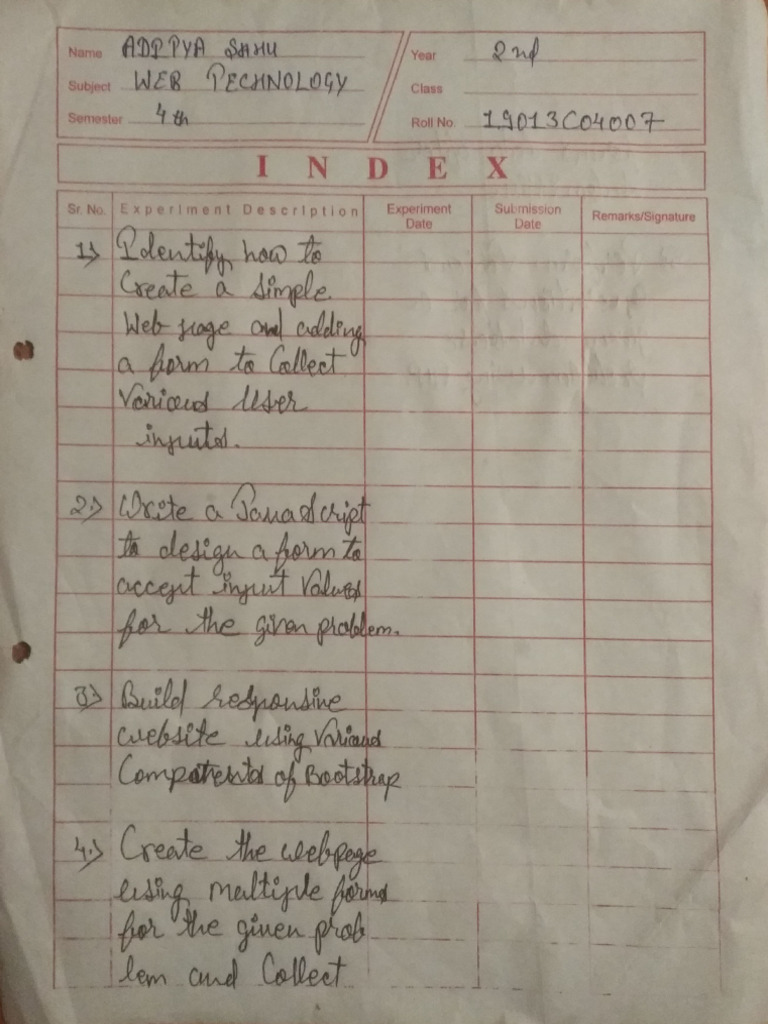 Name ADITYA SAHU
Subject WEB TECHNOLOGY
Semester 4th
Year 2nd
Class
Roll No. 19013C04007
INDEX
Sr. No. Experiment Description Experiment Date Submission Date Remarks/Signature
1) Identify how to
Create a simple
Web page and adding
a form to Collect
Various User
inputs.
2.) Write a JavaScript
to design a form to
accept input Values
for the given problem.
3) Build responsive
website using Various
Components of Bootstrap
4.) Create the webpage
using multiple forms
for the given prob
lem and Collect